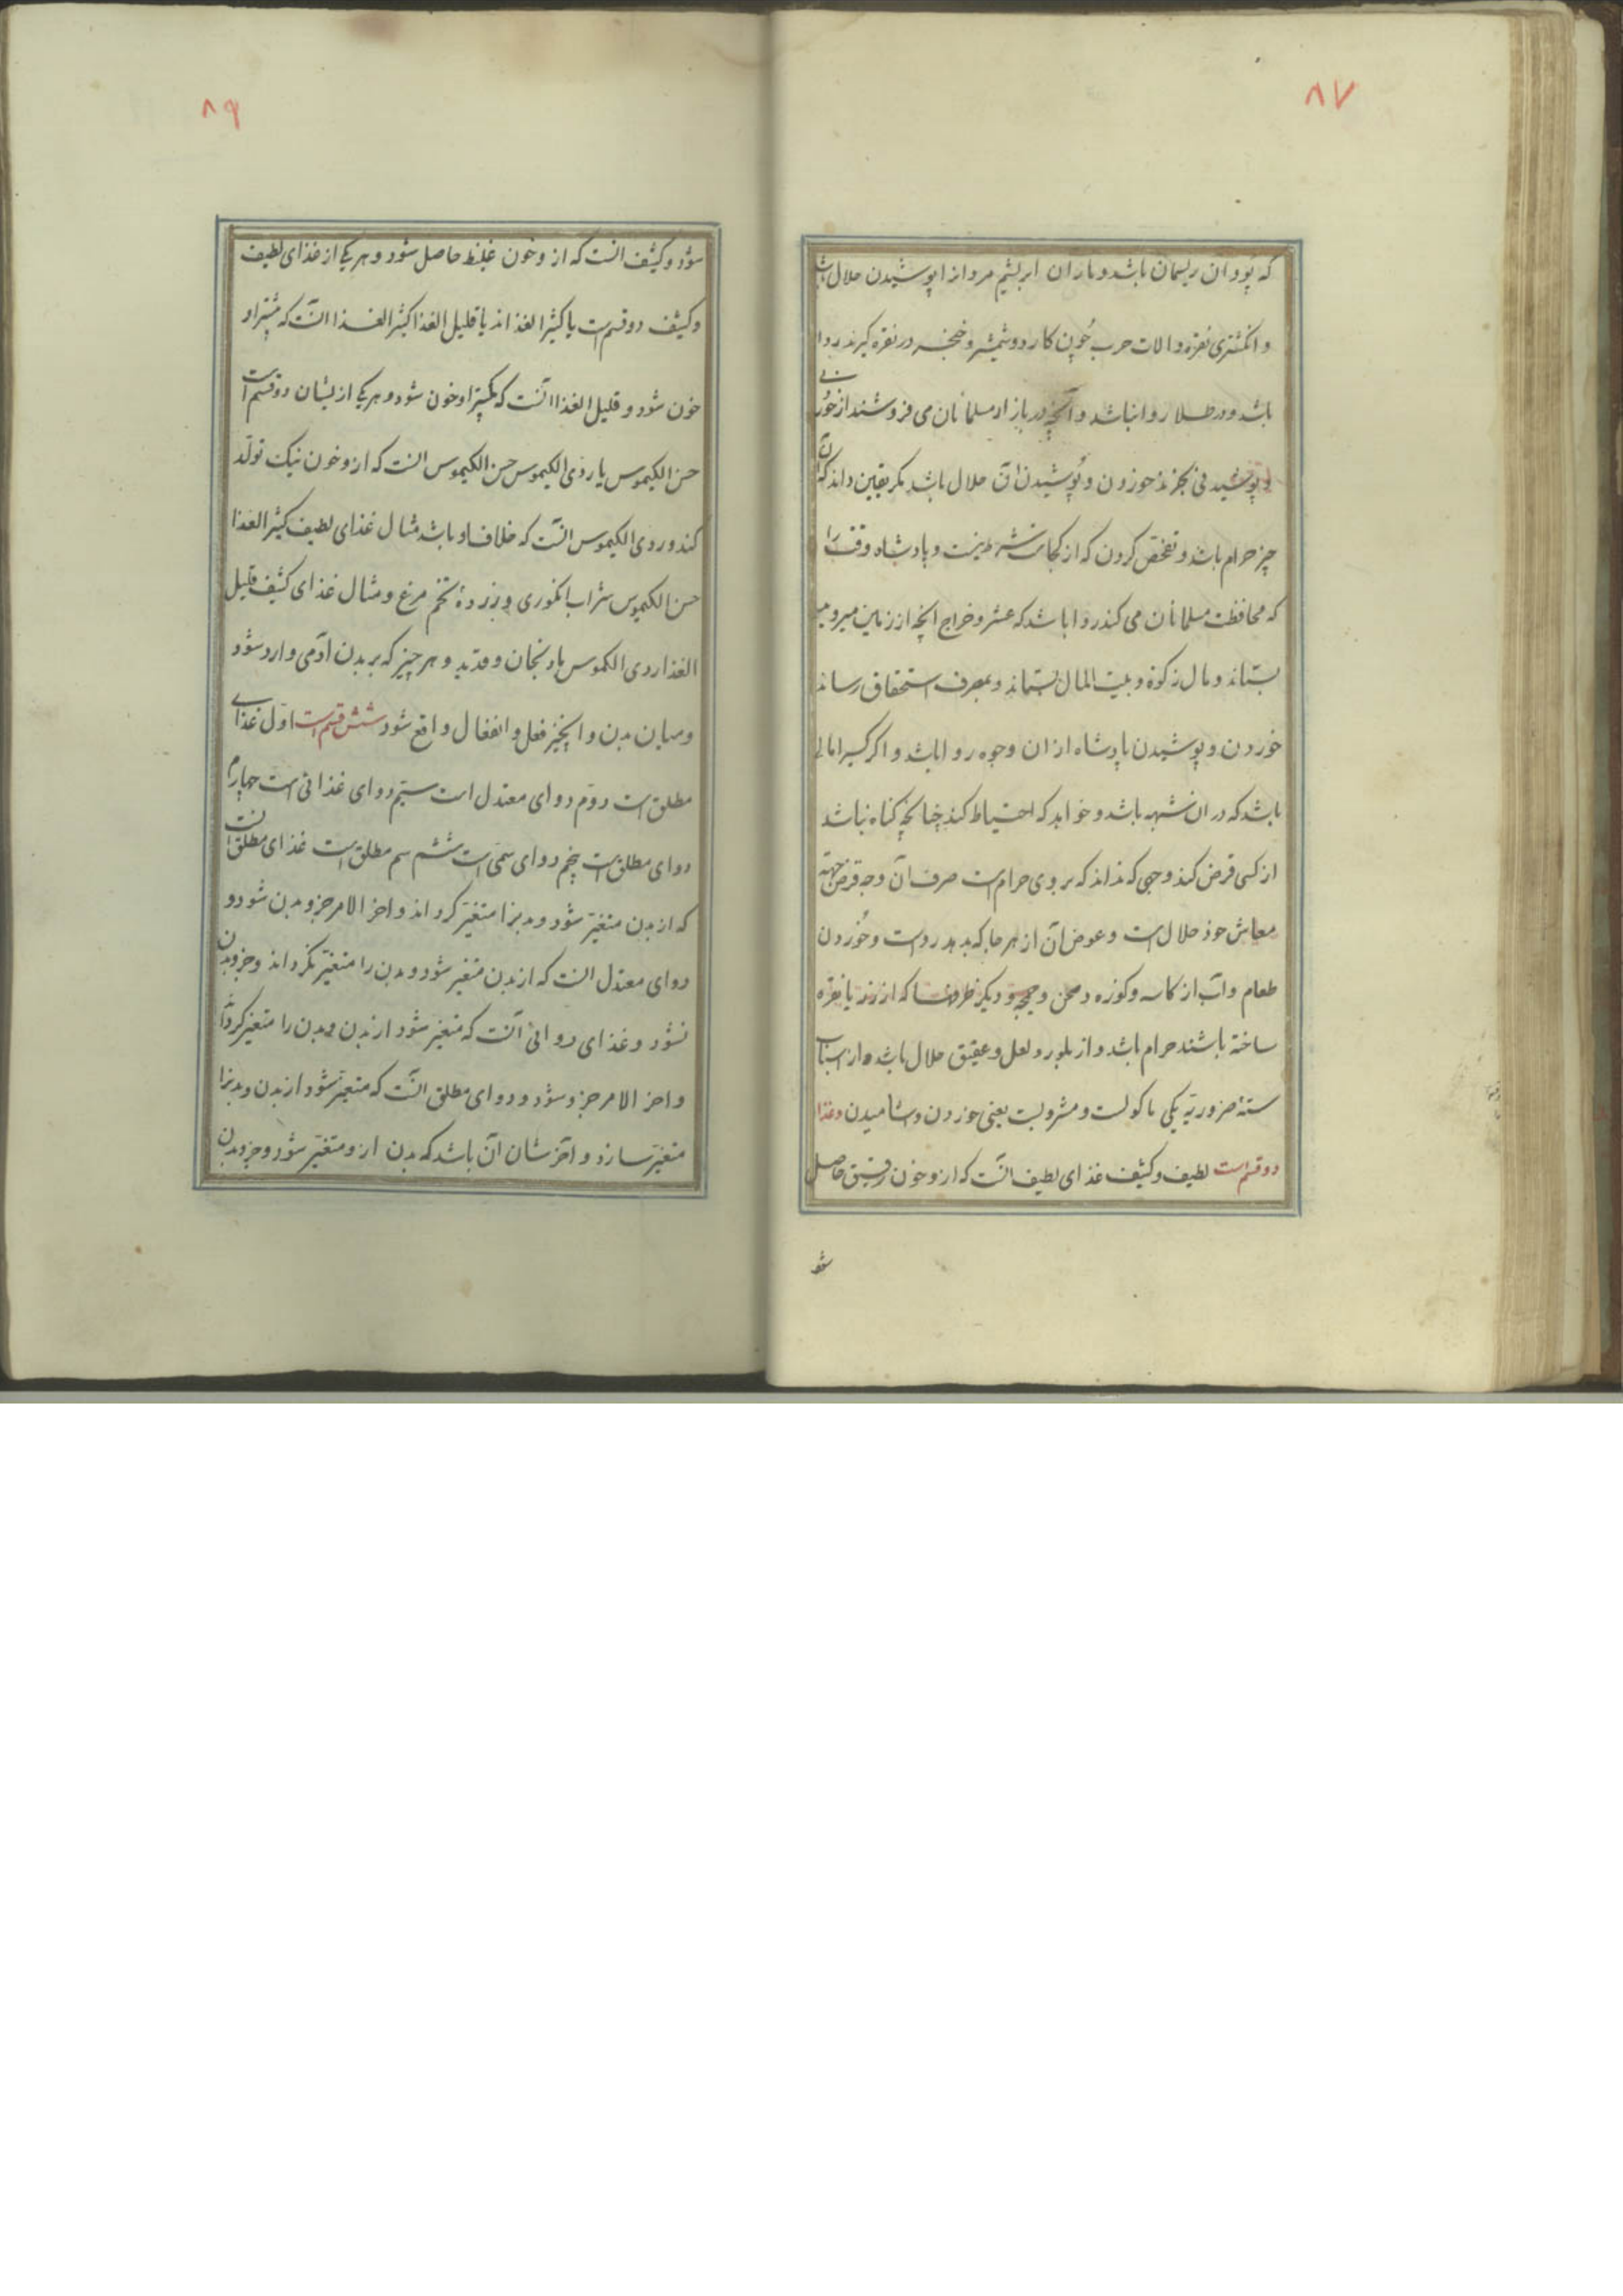 ۸۷
که پود آن ریسمان باشد و تاران ابریشم مردانرا پوشیدن حلال باشد
و انگشتری نقره و الات حرب چون کارد و شمشیر و خنجر در نقره گیرند روا
باشد و در طلا روا نباشد و آنچه در بازار مسلمانان می فروشند از خوردنی
و پوشیدنی بخرند خوردن و پوشیدن آن حلال باشد مگر یقین داند که آن
چیز حرام باشد و تفحص کردن که از کجاست شرط نیست و پادشاه وقت را
که محافظت مسلمانان می کند روا باشد که عشر و خراج انچه از زمین میروید
بستاند و مال زکوة و بیت المال بستاند و بمصرف استحقاق رساند
خوردن و پوشیدن پادشاه از ان وجوه روا باشد و اگر کسیرا مالی
باشد که در ان شبهه باشد و خواهد که احتیاط کند چنانچه گناه نباشد
از کسی قرض کند وجهی که نداند که بروی حرام است صرف آن وجه قرض جهة
معاش خود حلال است و عوض آن از هر جا که بدهد رواست و خوردن
طعام و آب از کاسه و کوزه و صحن و چمچه و دیگر ظرفها که از زر یا نقره
ساخته باشند حرام باشد و از بلور و لعل و عقیق حلال باشد و از اسباب
ستهٔ ضروریه یکی ماکولست و مشروبست یعنی خوردن و اشامیدن و غذا
دو قسم است لطیف و کثیف غذای لطیف انست که ازو خون رقیق حاصل
شود
۸۹
شود و کثیف انست که ازو خون غلیظ حاصل شود و هر یکی از غذای لطیف
و کثیف دو قسم است یا کثیر الغذا اند یا قلیل الغذا کثیر الغذا انست که بیشتر او
خون شود و قلیل الغذا آنست که کمتر او خون شود و هر یکی ازیشان دو قسم است
حسن الکیموس یا ردی الکیموس حسن الکیموس انست که ازو خون نیک تولد
کند و ردی الکیموس انست که خلاف او باشد مثال غذای لطیف کثیر الغذا
حسن الکیموس شراب انگوری و زردهٔ تخم مرغ و مثال غذای کثیف قلیل
الغذا ردی الکموس بادنجان و قدید و هر چیز که بر بدن آدمی وارد شود
و میان بدن و انچیز فعل و انفعال واقع شود شش قسم است اول غذای
مطلق است دوم دوای معتدل است سیم دوای غذائی است چهارم
دوای مطلق است پنجم دوای سمی است ششم سم مطلق است غذای مطلق انست
که از بدن متغیر شود و بدنرا متغیر گرداند و اخر الامر جزو بدن شود و
دوای معتدل انست که از بدن متغیر شود و بدن را متغیر نگرداند و جزو بدن
نشود و غذای دوائی آنست که متغیر شود از بدن و بدن را متغیر گرداند
و اخر الامر جزو شود و دوای مطلق انست که متغیر شود از بدن و بدنرا
متغیر سازد و آخر شان آن باشد که بدن ازو متغیر شود و جزو بدن